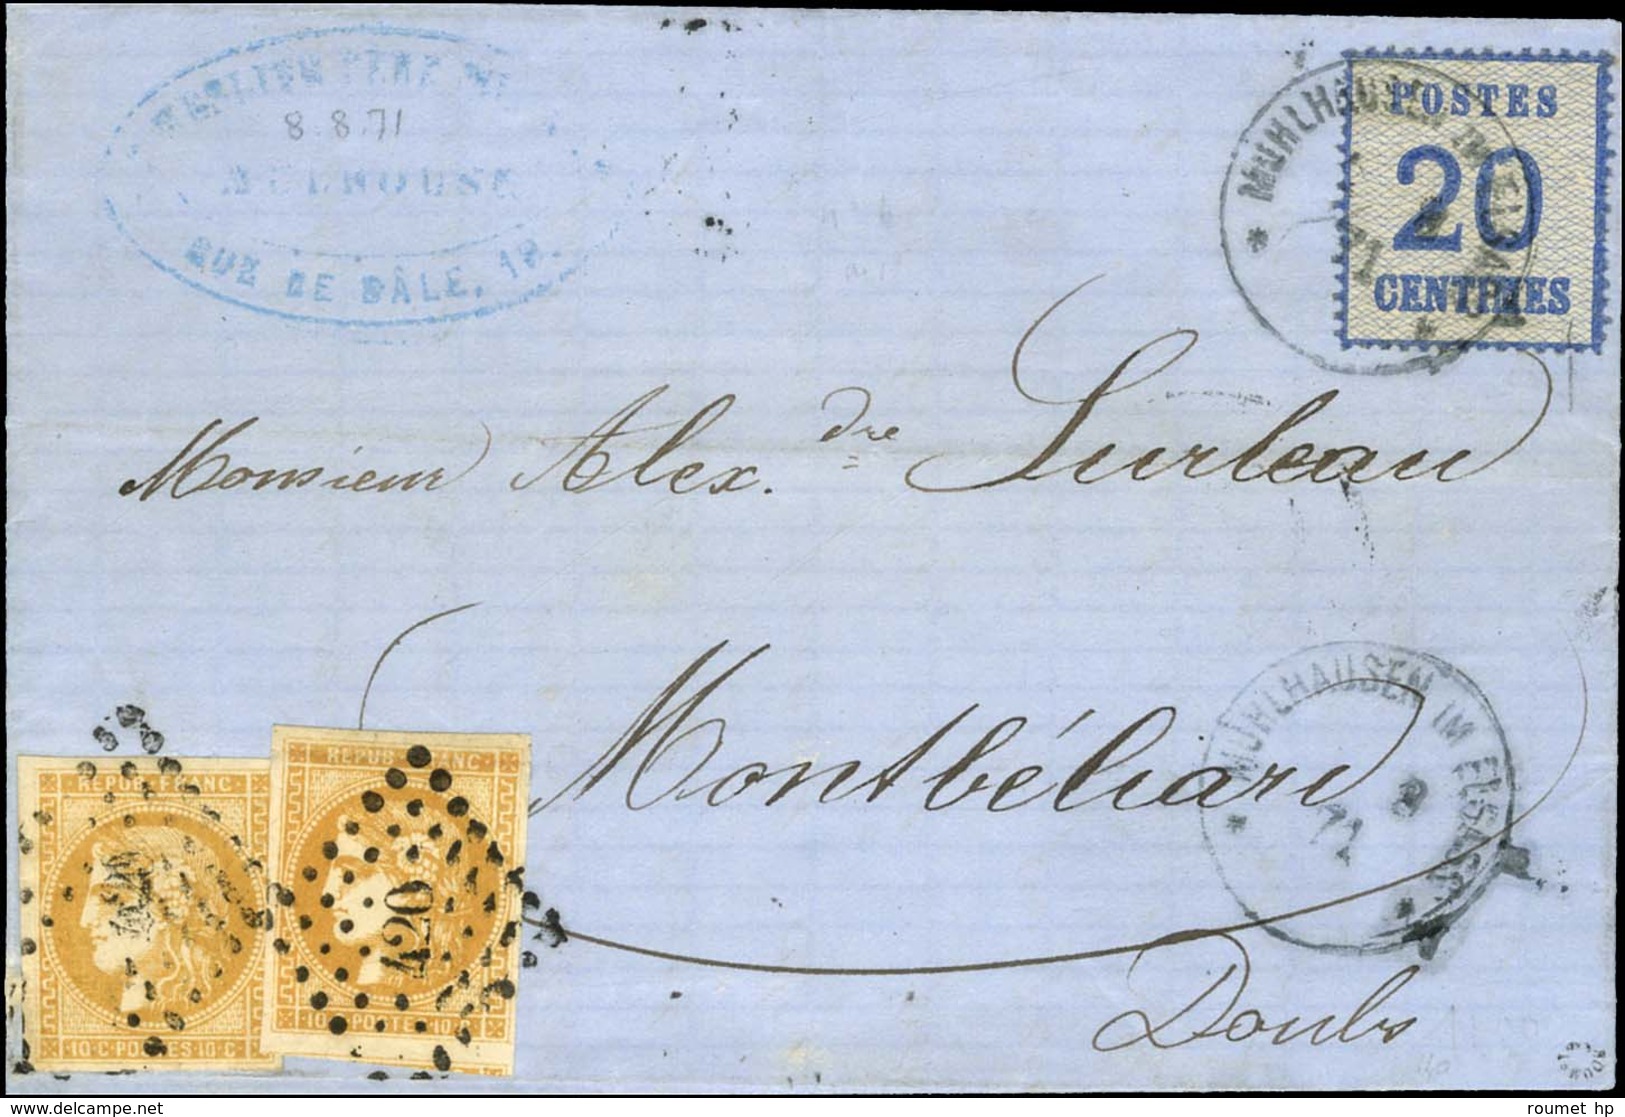 PÈRE
8.8.71
MULHOUSE
RUE DE BÂLE, 18.
POSTES
20
CENTIMES
MÜHLHAUSEN IM ELSASS
71
Monsieur Alex.dre Surleau
Montbéliard
Doubs
MÜHLHAUSEN IM ELSASS
8
71
REPUB. FRANC
10·C·POSTES·10·C
REPUB. FRANC
420
10·C·POSTES·10·C
roumet hp